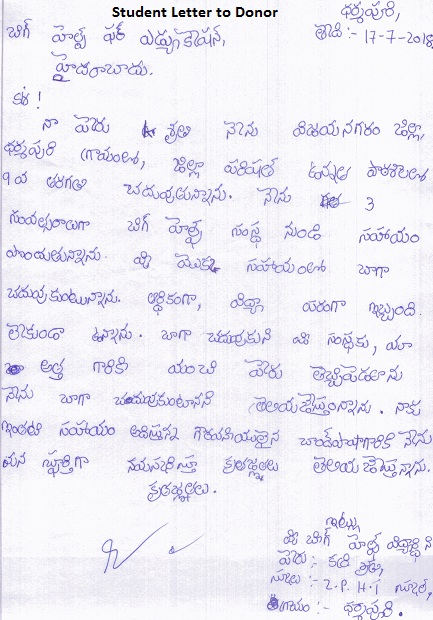 Student Letter to Donor
ధర్మపురి,
తేది :- 17-7-2018
బిగ్ హెల్ప్ ఫర్ ఎడ్యుకేషన్,
హైదరాబాదు.
సర్ !
నా పేరు శ్రుతి నేను విజయనగరం జిల్లా,
ధర్మపురి గ్రామంలో, జిల్లా పరిషత్ ఉన్నత పాఠశాలలో
9 వ తరగతి చదువుతున్నాను. నేను గత 3
సంవత్సరాలుగా బిగ్ హెల్ప్ సంస్థ నుండి సహాయం
పొందుతున్నాను. మీ యొక్క సహాయంలో బాగా
చదువుకుంటున్నాను. ఆర్థికంగా, విద్యా పరంగా ఇబ్బంది
లేకుండా ఉన్నాను. బాగా చదువుకుని మీ సంస్థకు, మా
గారికి మంచి పేరు
నేను బాగా చదువుకుంటానని తెలియజేస్తున్నాను. నాకు
ఇంతటి సహాయం గారికి నేను
మన స్ఫూర్తిగా నమస్కరిస్తూ కృతజ్ఞతలు తెలియజేస్తున్నాను.
కృతజ్ఞతలు.
ఇట్లు
మీ బిగ్ హెల్ప్ విద్యార్థిని
పేరు :-
స్కూలు :- Z.P.H. స్కూల్,
గ్రామం :- ధర్మపురి.